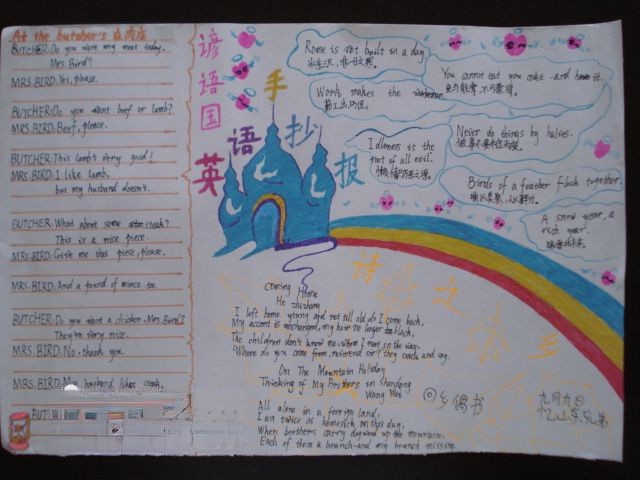 At the butcher's 在肉店
BUTCHER: Do you want any meat today,
Mrs. Bird?
MRS. BIRD: Yes, please.
BUTCHER: Do you want beef or lamb?
MRS. BIRD: Beef, please.
BUTCHER: This lamb's very good!
MRS. BIRD: I like lamb,
but my husband doesn't.
BUTCHER: What about some steak?
This is a nice piece.
MRS. BIRD: Give me this piece, please.
MRS. BIRD: And a pound of mince too.
BUTCHER: Do you want a chicken, Mrs. Bird?
They're very nice.
MRS. BIRD: No, thank you.
MRS. BIRD: My husband likes steak,
谚语国
英语手抄报
Rome is not built in a day.
冰冻三尺,非一日之寒。
Work makes the
You cannot eat you cake and have it.
Idleness is the
root of all evil.
Never do things by halves.
Birds of a feather flock together.
A snow year, a
rich year.
瑞雪兆丰年。
诗之
Coming Home
He Zhizhang
I left home young and not till old do I come back,
My accent is unchanged, my hair no longer black,
The children don't know me, whom I meet on the way,
"Where do you come from, reverend sir?" they smile and say.
On The Mountain Holiday
Thinking of My Brothers in Shandong
Wang Wei
All alone in a foreign land,
I am twice as homesick on this day,
When brothers carry dogwood up the mountain,
Each of them a branch-and my branch missing.
回乡偶书
九月九日
忆山东兄弟